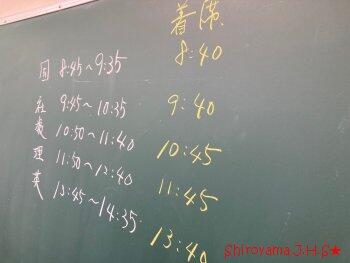 着席
国 8:45~9:35 8:40
社 9:45~10:35 9:40
数 10:50~11:40 10:45
理 11:50~12:40 11:45
英 13:45~14:35 13:40
Shiroyama J.H.S★